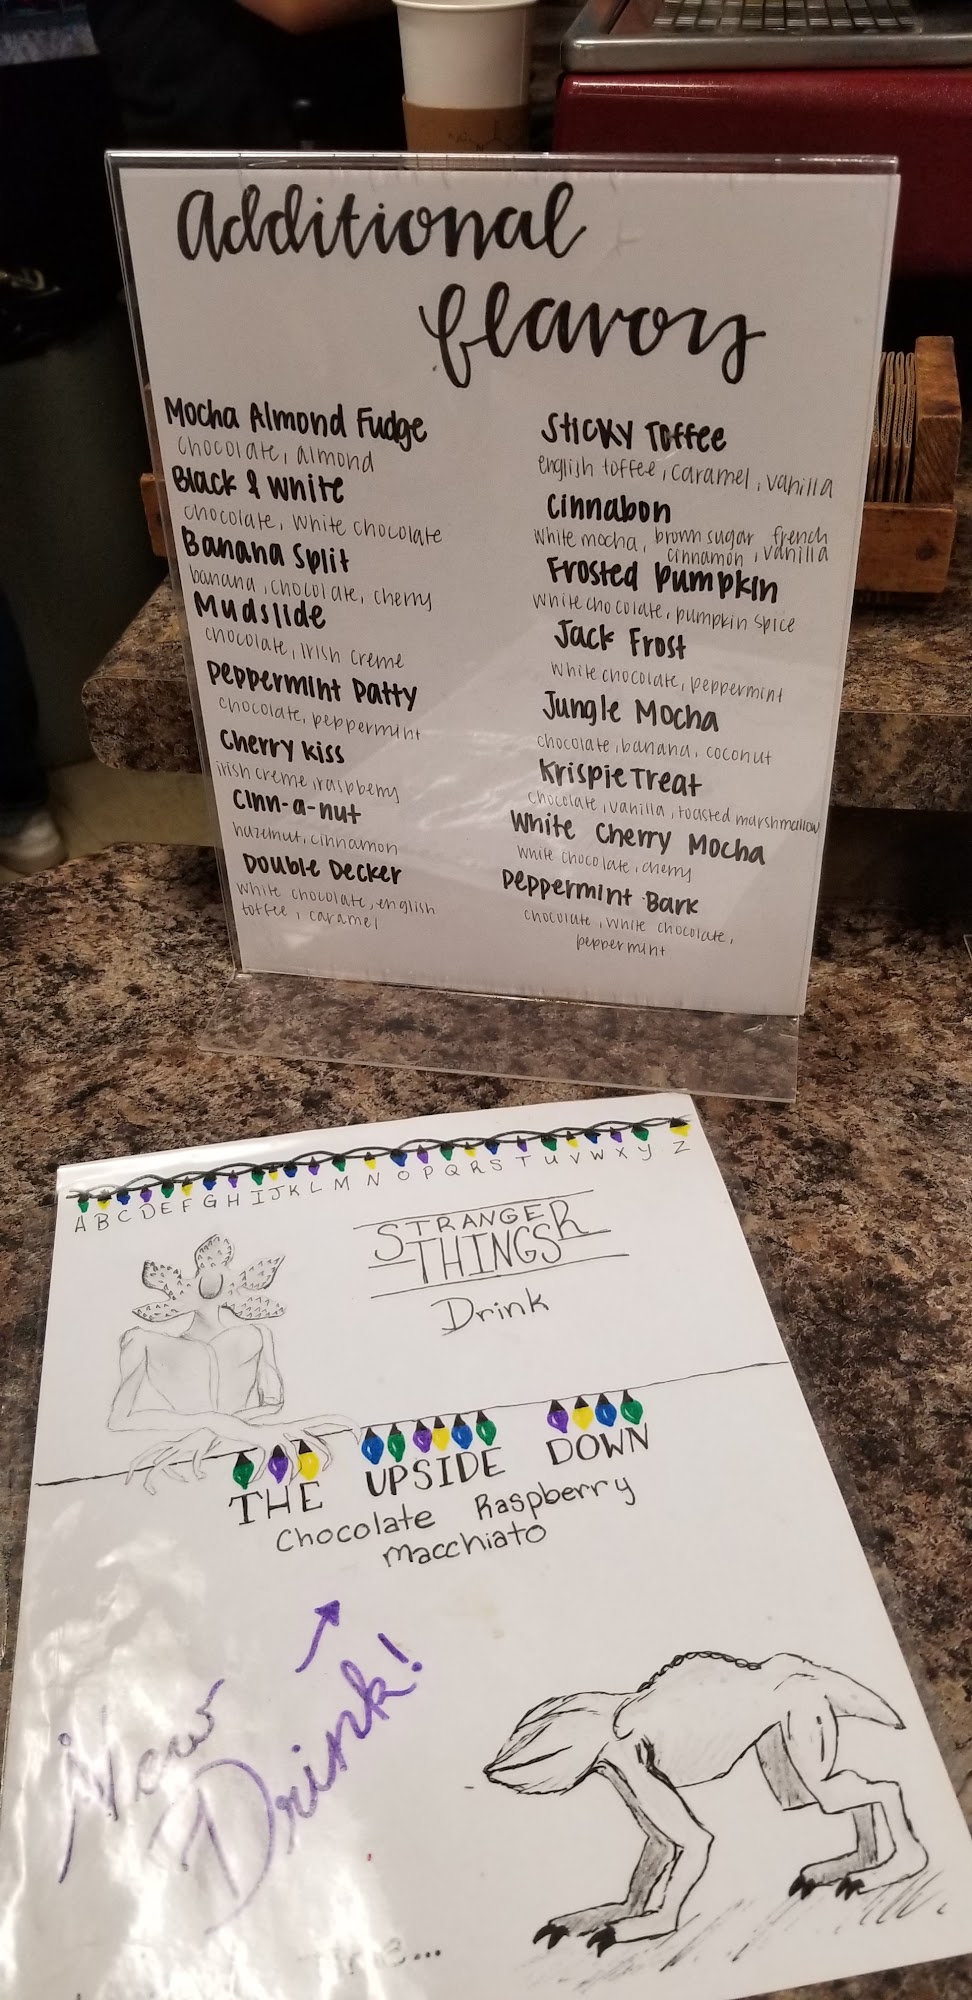 Additional
flavors
Mocha Almond Fudge
chocolate, almond
Black & White
chocolate, white chocolate
Banana Split
banana, chocolate, cherry
Mudslide
chocolate, Irish creme
Peppermint Patty
chocolate, peppermint
Cherry Kiss
irish creme, raspberry
Cinn-a-nut
hazelnut, cinnamon
Double Decker
white chocolate, english
toffee, caramel
Sticky Toffee
english toffee, caramel, vanilla
Cinnabon
white mocha, brown sugar french
cinnamon, vanilla
Frosted Pumpkin
white chocolate, pumpkin spice
Jack Frost
white chocolate, peppermint
Jungle Mocha
chocolate, banana, coconut
Krispie Treat
chocolate, vanilla, toasted marshmallow
White Cherry Mocha
white chocolate, cherry
Peppermint Bark
chocolate, white chocolate,
peppermint
A B C D E F G H I J K L M N O P Q R S T U V W X Y Z
STRANGER
THINGS
Drink
THE UPSIDE DOWN
Chocolate Raspberry
Macchiato
New
Drink!